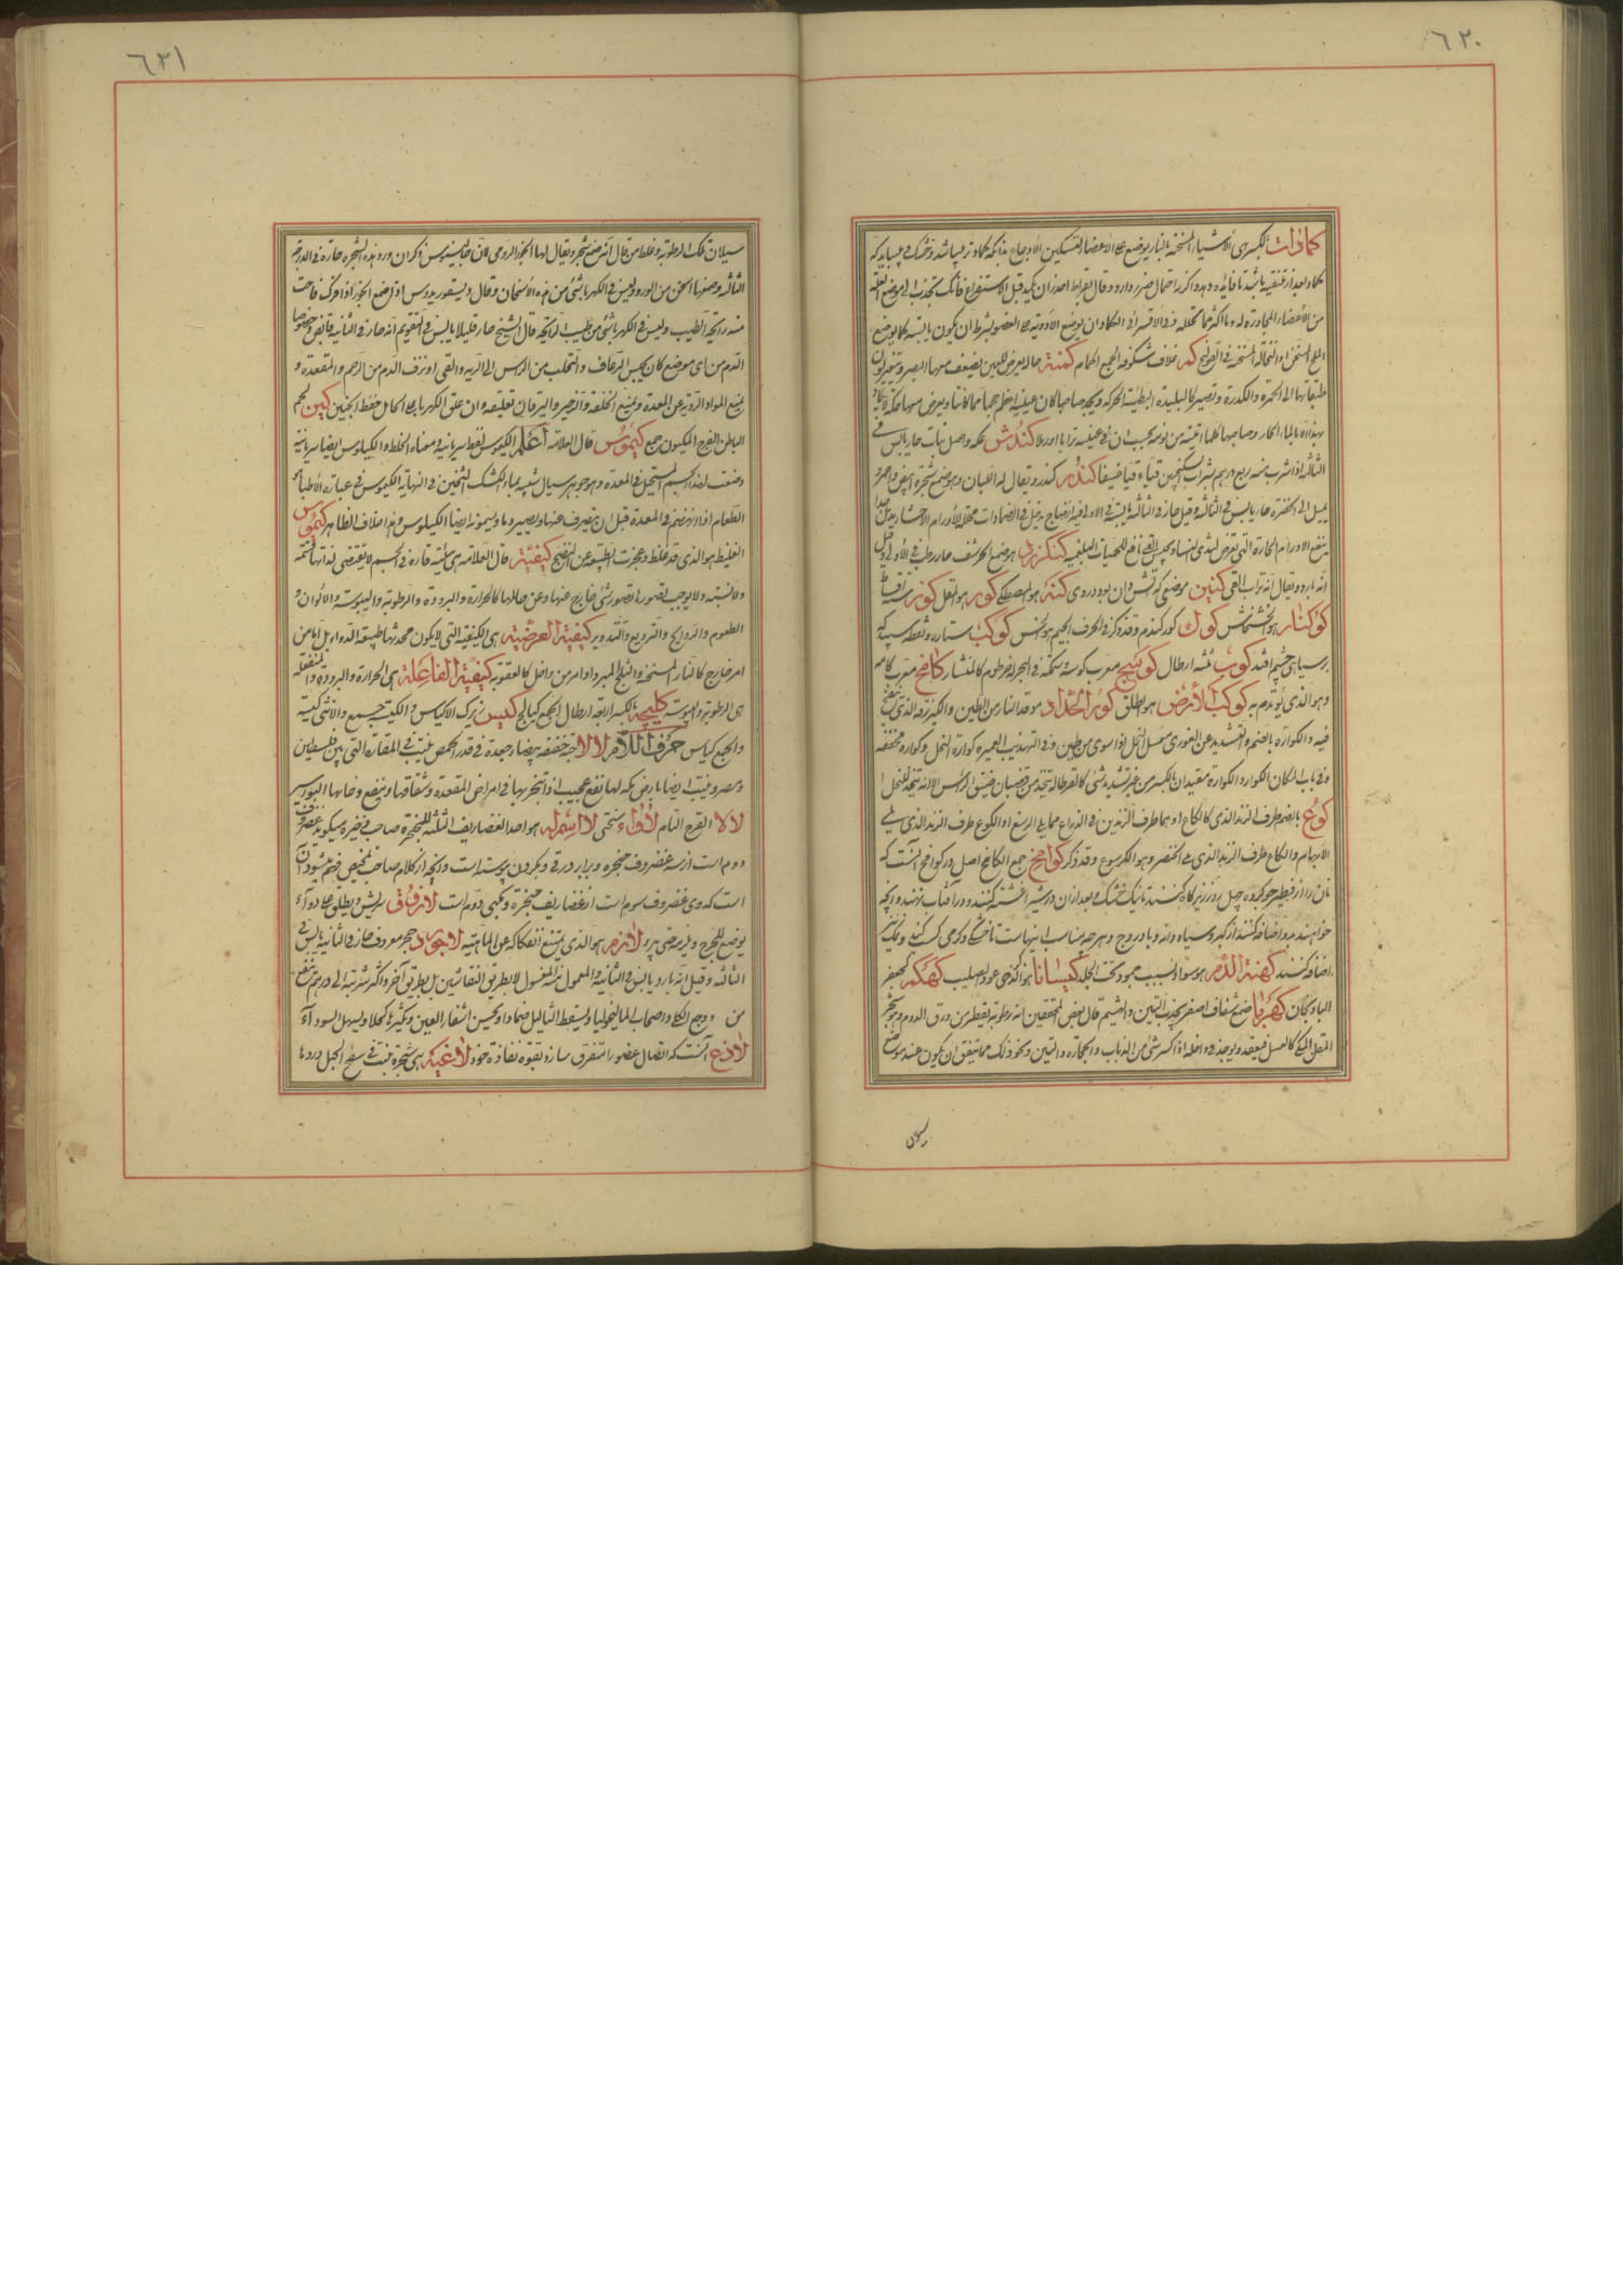 ٦٢٠
كمادات بالكسر هى الأشياء المسخنة بالنار يوضع على الأعضاء لتسكين الأوجاع بدانكه كماد تر ميباشد وخشك مى بايد كه
كماد بعد از تنقيه باشد تا فائده دهد واكرنه احتمال ضرر دارد وقال بقراط احذر ان تكمد قبل الاستفراغ فانك تجذب الى موضع العلة
من الأعضاء المجاورة له ما اكثر مما تحلله فى الاقسرائى الكماد ان يوضع الأدوية على العضو بشرط ان يكون يابسة كما يوضع
الملح المسخن او النخالة المسخنة فى القولنج كمر غلاف شكوفه الجمع اكمام كمنة حالة يعرض للعين يضعف معها البصر ويتغير لون
طبقاتها الى الحمرة والكدرة وتصير كالبليدة البطيئة الحركة ويجد صاحبها كان عينيه اعظم حجما مما كانتا ويعرض معها حكة
بالماء الحار وصاحبها كلما انتبه من نومه يحسب ان فى عينيه ترابا او رملا كندش بمكه واصل نبات حار يابس فى
الثالثة اذا شرب منه ربع درهم بشراب سكنجبين قيأ قيئا ضعيفا كندر كندرو يقال له اللبان وهو صمغ شجرة ابيض واحمر و
يميل الى الخضرة حار يابس فى الثالثة وقيل حار فى الثالثة يابس فى الاولى فيه انضاج يدخل فى الضمادات محللة لأورام الاحشاء
ينفع الاورام الحارة التى يعرض لثدى النساء ويحبس القئ نافع للحميات البلغمية كنكرزد هو صمغ الحرشف حار رطب فى الأولى وقيل
انه بارد ويقال انه تراب القى كنين موضعى كه آتش دان بود ودروى كنة هو المصطكى كور هو المقل كوز ستة اقساط
كوكنار هو الخشخاش كوك كوركندم وقد ذكر فى الحرف الجيم هو الخس كوكب ستاره ونقطه سپيد كه
بر سياهى چشم افتد كوب ثلثة ارطال كوسج معرب كوسه وسمكة فى البحر له خرطوم كالمنشار كامخ معرب كامه
وهو الذى يؤتدم به كوكب الأرض هو الطلق كور الحداد موقد النار من الطين والكير زقه الذى ينفخ
فيه والكوارة بالضم والتشديد عن الغورى معسل النحل اذا سوى من طين وفى التهذيب العميرة كوارة النحل وكوارة مخففة
وفى باب الكاف الكوار والكوارة مقيدان بالكسر من غير تشديد شئ كالقرطالة يتخذ من قضبان ضيق الرأس الا انه يتخذ للنحل
كوع بالضم طرف الزند الذى كالكاع او هما طرف الزندين فى الذراع مما يلى الرسغ او الكوع طرف الزند الذى يلى
الابهام والكاع طرف الزند الذى يلى الخنصر وهو الكرسوع وقد ذكر كوامخ جمع الكامخ اصل در كوامخ آنست كه
نان را از فطير جو كرده چهل روز زير كاه كنند تا نيك خشك بعد ازان در شير اغشته كنند ودر آفتاب نهند وآنچه
خواهند بدو اضافه كنند از كبر وسياه دانه وبادروج وهر چه مناسب اينهاست تا خشكى وكرمى كسب كند ونمك نيز
اضافه كنند كهنة الدم هو سواد بسبب جمود تحت الجلد كيسانا هو الذى عود الصليب كهكم كجعفر
الباذنجان كهربا صمغ شفاف اصفر يجذب التبن والهشيم قال بعض المحققين انه رطوبة يقطر من ورق الدوم وهو شجر
المقل المكى كالعسل فينعقد ويوجد فى داخله اذا كسر شئ من الذباب والحجارة والتبن ونحو ذلك مما يتفق ان يكون عند موضع
سيلان
٦٢١
سيلان تلك الرطوبة وغلط من قال انه صمغ شجر ويقال لها الحور الرومى لأن جالينوس ذكر ان ورد هذه الشجرة حارة فى الدرجة
الثالثة وصمغها اسخن من الورد وليس فى الكهربا شئ من هذه الأسخان وقال ديسقوريدوس ان صمغ الحور اذا فرك فاحت
منه رائحة الطيب وليس فى الكهربا شئ من طيب الرائحة قال الشيخ حار قليلا يابس فى التقويم انه حار فى الثانية قابض وخصوصا
الدم من اى موضع كان يحبس الرعاف والتحلب من الرأس الى الرية والقى او نزف الدم من الرحم والمقعدة و
يمنع المواد الردية عن المعدة ويمنع الخلفة والزحير واليرقان تعليقه وان علق الكهربا على الحامل حفظ الجنين كين لحم
الباطن الفرج الكيون جمع كيموس قال العلامة اعلم الكيموس لفظ سريانية ومعناه الخلط والكيلوس ايضا سريانية
وضعت لهذا الجسم المستحيل فى المعدة وهو جوهر سيال شبيه بماء الكشك الثخين فى النهاية الكيموس فى عبارة الأطباء
الطعام اذا انهضم فى المعدة قبل ان ينصرف عنها ويصير دما ويسمونه ايضا الكيلوس وهذا خلاف الظاهر كيموس
الغليظ هو الذى قد غلظ وعجزت الطبيعة عن النضج كيفية قال العلامة هى هيئة قارة فى الجسم لا يقتضى لذاتها قسمة
ولا نسبة ولا يوجب تصورها تصور شئ خارج عنها وعن حاملها كالحرارة والبرودة والرطوبة واليبوسة والألوان و
الطعوم والروايح والتربيع والتدوير كيفية العرضية هى الكيفية التى لا يكون محدثها طبيعة الدواء بل اما من
امر خارج كالنار المسخنة والثلج المبرد او امر من داخل كالعفونة كيفية الفاعلة هى الحرارة والبرودة والمنفعلة
هى الرطوبة واليبوسة كليجه بالكسر اربعة ارطال الجمع كيالج كيس زيرك الاكياس والكيسة جمع والانثى كيسة
والجمع كياس حرف اللام لالا حبة خفيفة بيضاء جعدة فى قدر الحمص ينبت فى المفازة التى بين فلسطين
ومصر وينبت ايضا بارض مكه لها نفع عجيب اذا تبخر بها فى امراض المقعدة وشقاقها وينفع دخانها البواسير
لالا الفرح التام لأواء سختى لا اسم له هو احد الغضاريف الثلثة للحنجرة صاحب ذخيره ميكويد غضروف
دوم است از سه غضروف حنجره وبرابر درقى وبكردن پيوسته است وآنچه از كلام صاحب تلخيص فهم ميشود آن
است كه وى غضروف سوم است از غضاريف حنجرة ومكبى دوم است لازوق سريش ويطلق على دواء
يوضع للجرح ويلزمه حتى يبرء لازم هو الذى يمتنع انفكاكه عن الماهية لاجورد حجر معروف حار فى الثانية يابس فى
الثالثة وقيل انه بارد يابس فى الثانية والمعمول منه المغسول لا بطريق النقاشين بل بطريق آخر واكثر شربته الى درهم ينفع
من وجع الكلى واصحاب الماليخوليا ويسقط الثاليل ضمادا ويحسن اشفار العين ويكثرها كحلا ويسهل السوداء
لاذع آنست كه اتصال عضو را متفرق سازد بقوة نفاذة خود لاغية هى شجرة تنبت فى سفح الجبل ورد ها